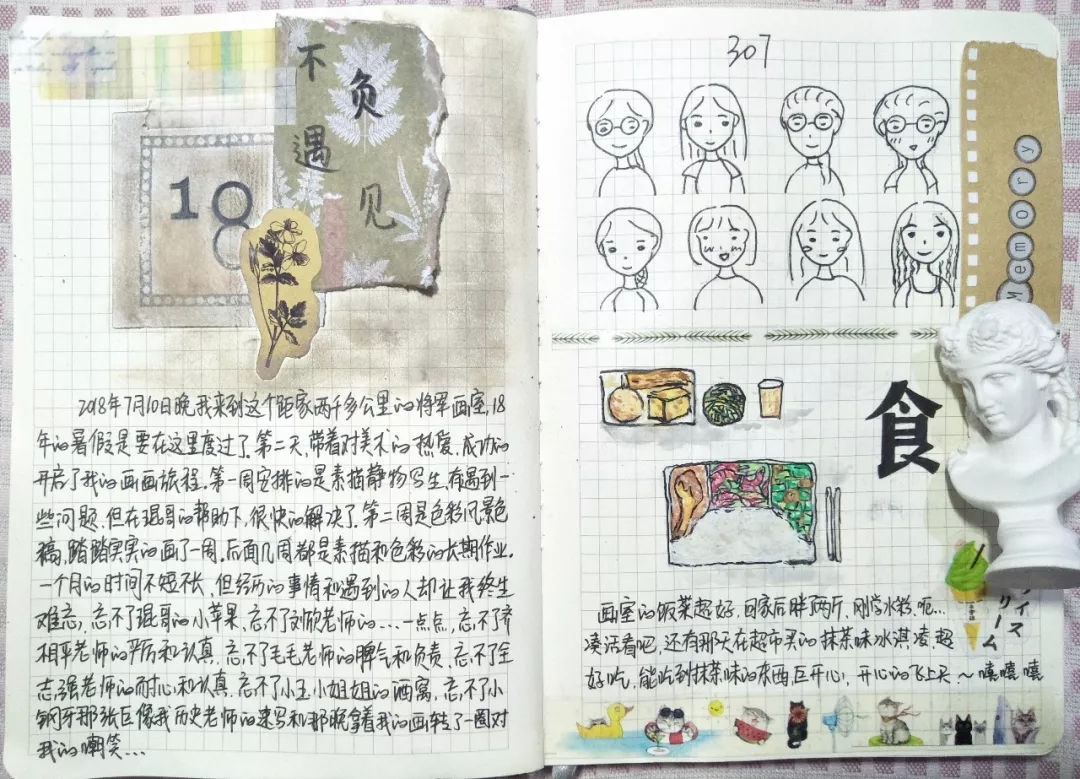 不负
遇见
18
2018年7月10日晚,我来到这个距家两千多公里的将军画室,18
年的暑假是要在这里度过了。第二天,带着对美术的热爱,成功的
开启了我的画画旅程。第一周安排的是素描静物写生,有遇到一
些问题,但在琨哥的帮助下,很快的解决了。第二周是色彩风景色
稿,踏踏实实的画了一周。后面几周都是素描和色彩的长期作业。
一个月的时间不短不长,但经历的事情和遇到的人却让我终生
难忘,忘不了琨哥的小苹果,忘不了刘欣老师的...一点点,忘不了齐
相平老师的严厉和认真,忘不了毛毛老师的脾气和负责,忘不了全
志强老师的耐心和认真,忘不了小王小姐姐的酒窝,忘不了小
钢牙那张巨像我历史老师的速写和那晚拿着我的画转了一圈对
我的嘲笑...
307
Memory
食
画室的饭菜超好,回家后胖了两斤,刚学水粉,呃...
凑活看吧,还有那天在超市买的抹茶味冰淇凌,超
好吃,能吃到抹茶味的东西巨开心,开心的飞上天~嘻嘻嘻
アイス
リーム